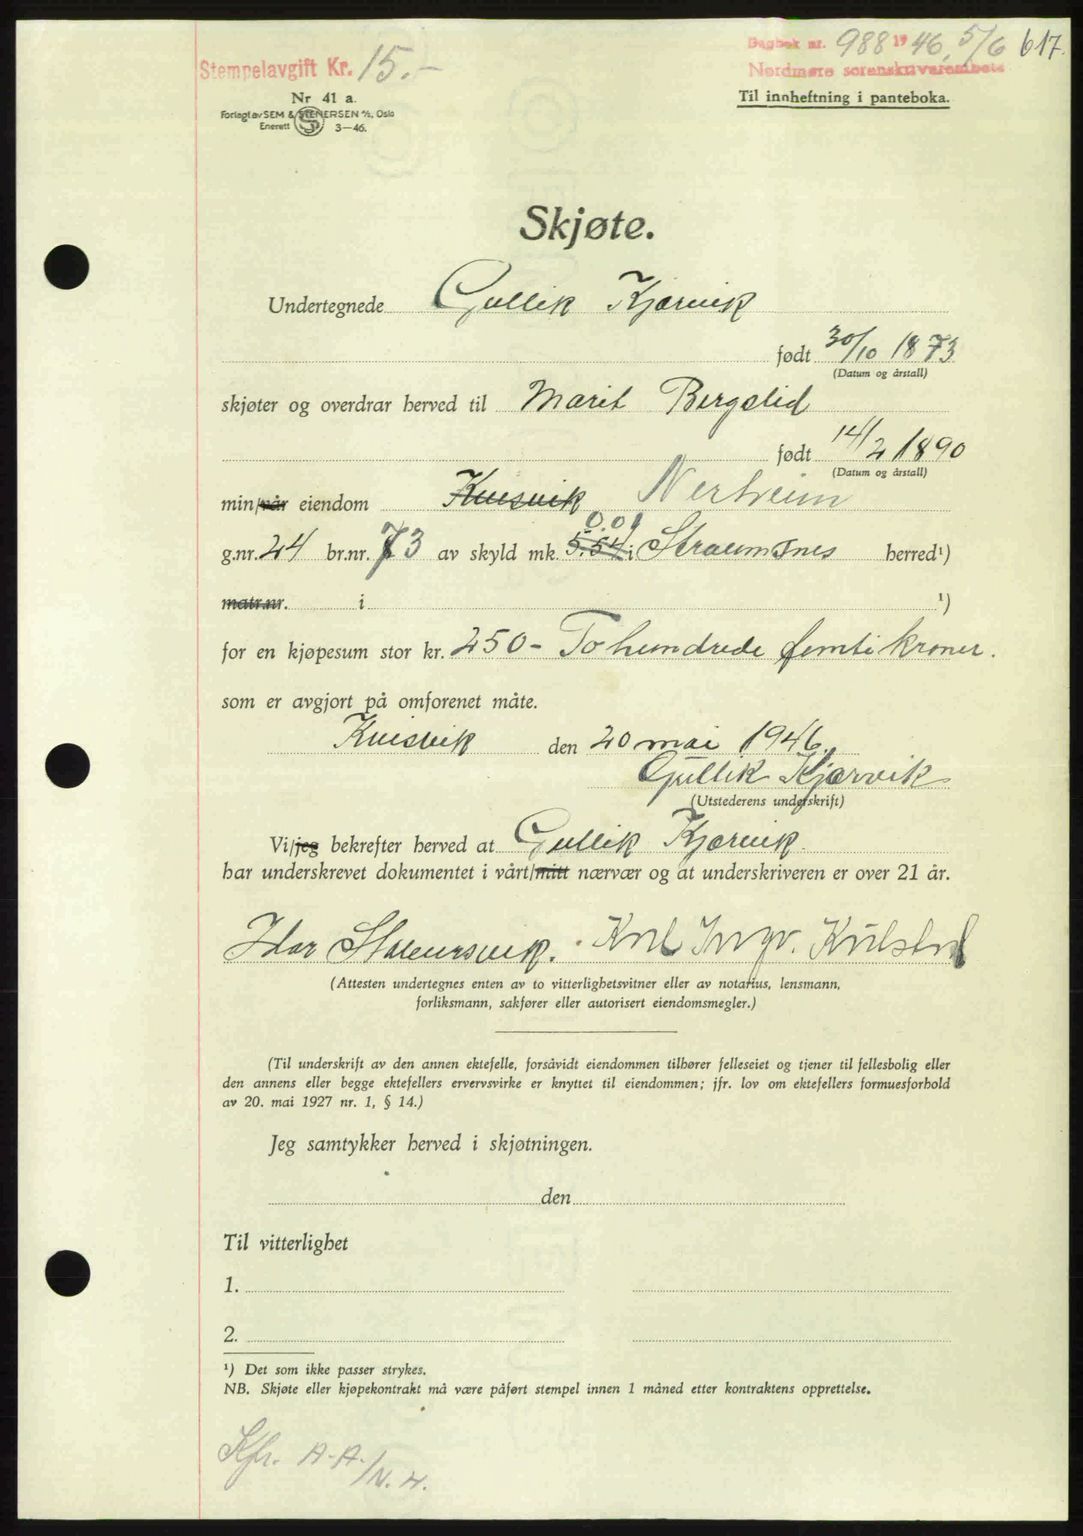 Stempelavgift Kr. 15.-
Dagbok nr. 988 1946, 5/6 617.
Nordmøre sorenskriverembete
Nr 41 a.
Forlagt av SEM & STENERSEN A/S, Oslo
Enerett 3-46.
Til innheftning i panteboka.
Skjøte.
Undertegnede Gullik Kjørvik
født 30/10 1873
(Datum og årstall)
skjøter og overdrar herved til Marit Bergslid
født 14/2 1890
(Datum og årstall)
min/vår eiendom Kvisvik Nerheim
0.01
g.nr. 24 br.nr. 73 av skyld mk. 5.54 i Straumsnes herred¹)
matr.nr. i ¹)
for en kjøpesum stor kr. 250- To hundrede femti kroner.
som er avgjort på omforenet måte.
Kvisvik den 20 mai 1946.
Gullik Kjørvik
(Utstederens underskrift)
Vi/jeg bekrefter herved at Gullik Kjørvik.
har underskrevet dokumentet i vårt/mitt nærvær og at underskriveren er over 21 år.
(Attesten undertegnes enten av to vitterlighetsvitner eller av notarius, lensmann,
forliksmann, sakfører eller autorisert eiendomsmegler.)
(Til underskrift av den annen ektefelle, forsåvidt eiendommen tilhører felleseiet og tjener til fellesbolig eller
den annens eller begge ektefellers ervervsvirke er knyttet til eiendommen; jfr. lov om ektefellers formuesforhold
av 20. mai 1927 nr. 1, § 14.)
Jeg samtykker herved i skjøtningen.
den
Til vitterlighet
1.
2.
¹) Det som ikke passer strykes.
NB. Skjøte eller kjøpekontrakt må være påført stempel innen 1 måned etter kontraktens opprettelse.